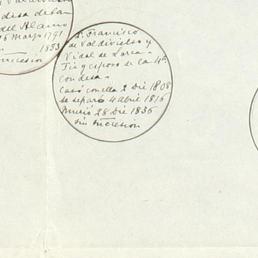 desa de ban
del Alamo
16 Marzo 1791
1833
sucesion
Dn. Francisco
de Valdivielso y
Vidal de Lorca
Tio y esposo de la 4ta
condesa.
Casó con ella 2 Dic 1808
se separó 4 abril 1816
Murió 28 Dic 1836
sin sucesion